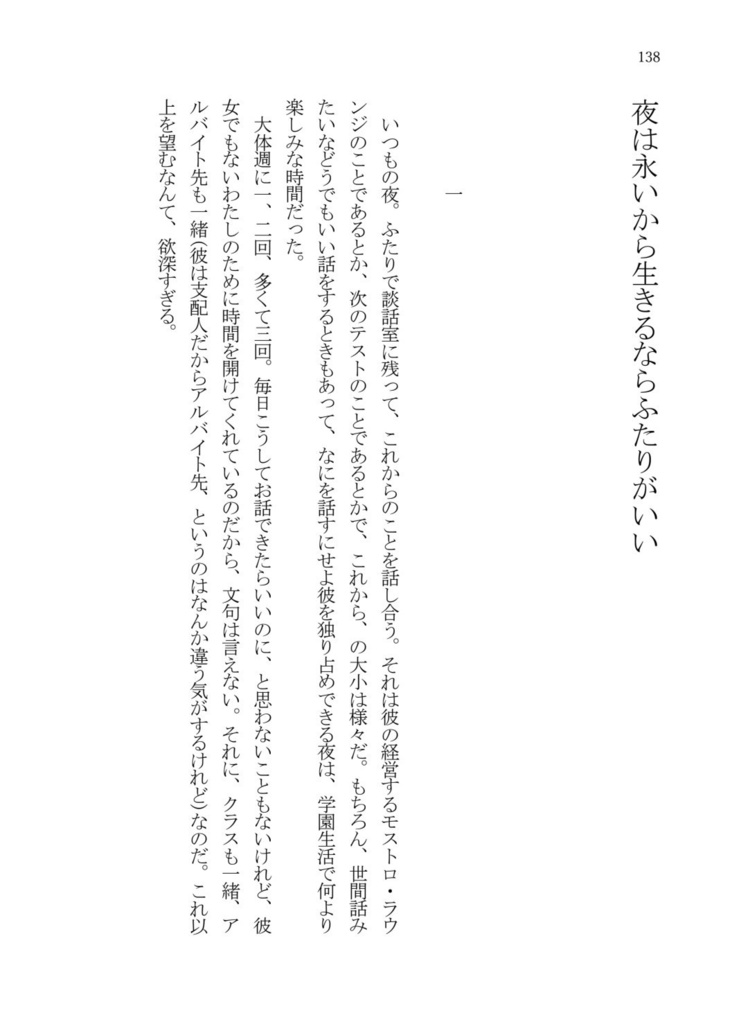 138
夜は永いから生きるならふたりがいい
一
いつもの夜。ふたりで談話室に残って、これからのことを話し合う。それは彼の経営するモストロ・ラウ
ンジのことであるとか、次のテストのことであるとかで、これから、の大小は様々だ。もちろん、世間話み
たいなどうでもいい話をするときもあって、なにを話すにせよ彼を独り占めできる夜は、学園生活で何より
楽しみな時間だった。
大体週に一、二回、多くて三回。毎日こうしてお話できたらいいのに、と思わないこともないけれど、彼
女でもないわたしのために時間を開けてくれているのだから、文句は言えない。それに、クラスも一緒、ア
ルバイト先も一緒(彼は支配人だからアルバイト先、というのはなんか違う気がするけれど)なのだ。これ以
上を望むなんて、欲深すぎる。